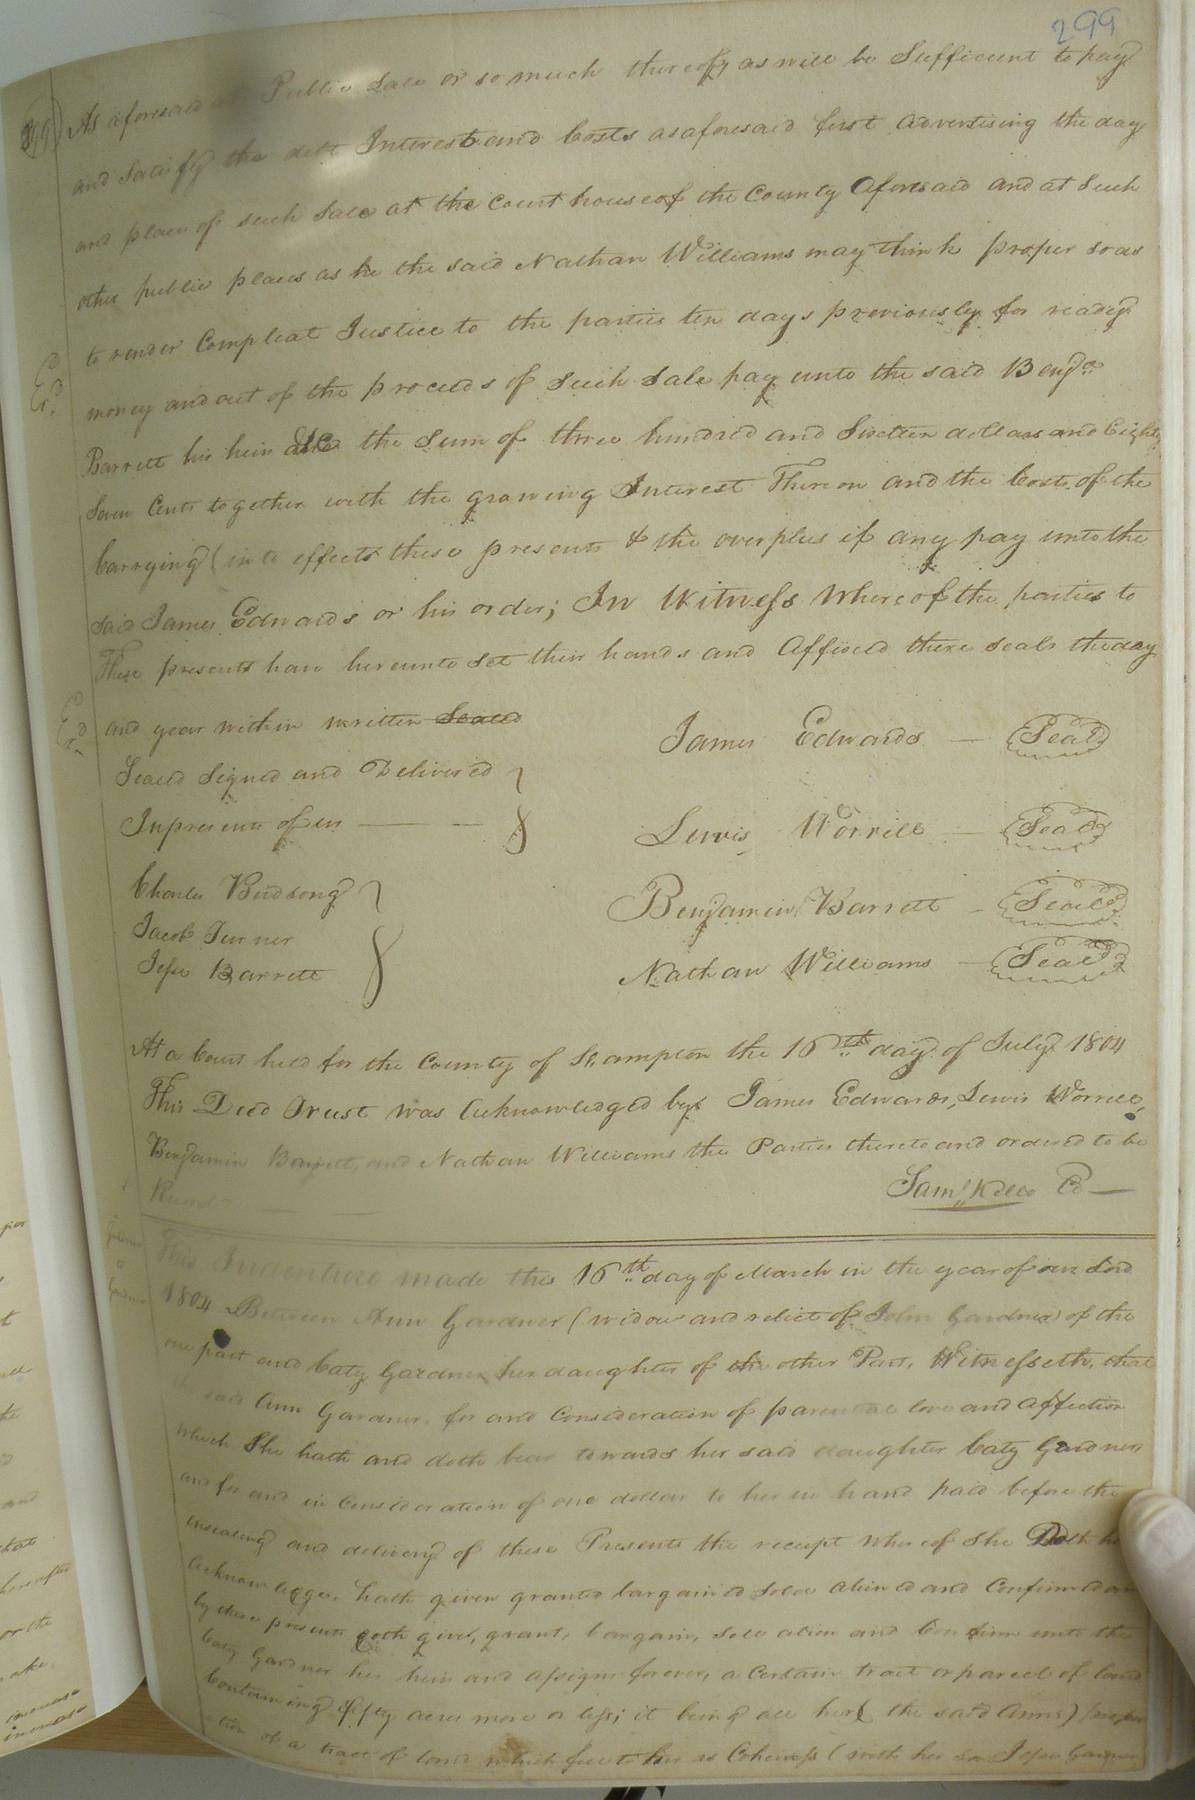 299
As aforesaid at Public Sale or so much thereof as will be Sufficient to pay
and Satisfy the debt Interest and Costs as aforesaid first advertising the day
and place of such Sale at the Court house of the County Aforesaid and at Such
other public places as he the said Nathan Williams may think proper so as
to render Compleat Justice to the parties ten days previously for ready
Ex.d
money and out of the proceeds of Such Sale pay unto the said Benja
Barrett his heirs &c the Sum of three hundred and Sixteen dollars and Eighty
Seven Cents together with the growing Interest Thereon and the Cost of the
Carrying into effects these presents & the overplus if any pay unto the
said James Edwards or his order; In Witness Whereof the parties to
These presents have hereunto set their hands and Affixed there seals the day
Ex.d
and year within written Sealed
James Edwards — Seal
Seald Signed and Delivered
In presents of us — —
Lewis Worrill — Seal
Charles Birdsong
Benjamin Barrett — Seal
Jacob Turner
Jesse Barrett
Nathan Williams — Seal
At a Court held for the County of So.ampton the 16th day of July 1804
This Deed Trust was Acknowledged by James Edwards, Lewis Worrell,
Benjamin Barrett, and Nathan Williams the Parties thereto and ordered to be
Saml Kello CC —
Gardner
to
Gardner
This Indenture made this 16th day of March in the year of our Lord
1804 Between Ann Gardner (widow and relict of John Gardner) of the
one part and Caty Gardner her daughter of the other Part, Witnesseth, that
said Ann Gardner, for and Consideration of parental love and Affection
which She hath and doth bear towards her said daughter Caty Gardner
and for and in Consideration of one dollar to her in hand paid before the
insealing and delivery of these Presents the receipt whereof She Doth
Acknowledge, hath given granted bargained Sold Aliened and Confirmed
by these presents doth give, grant, bargain, Sole alien and Confirm unto the
Caty Gardner her heirs and assigns forever, a Certain tract or parcel of land
Containing fifty acres more or less; it being all her (the said Anns)
of a tract of land which fell to her as Coheiress (with her